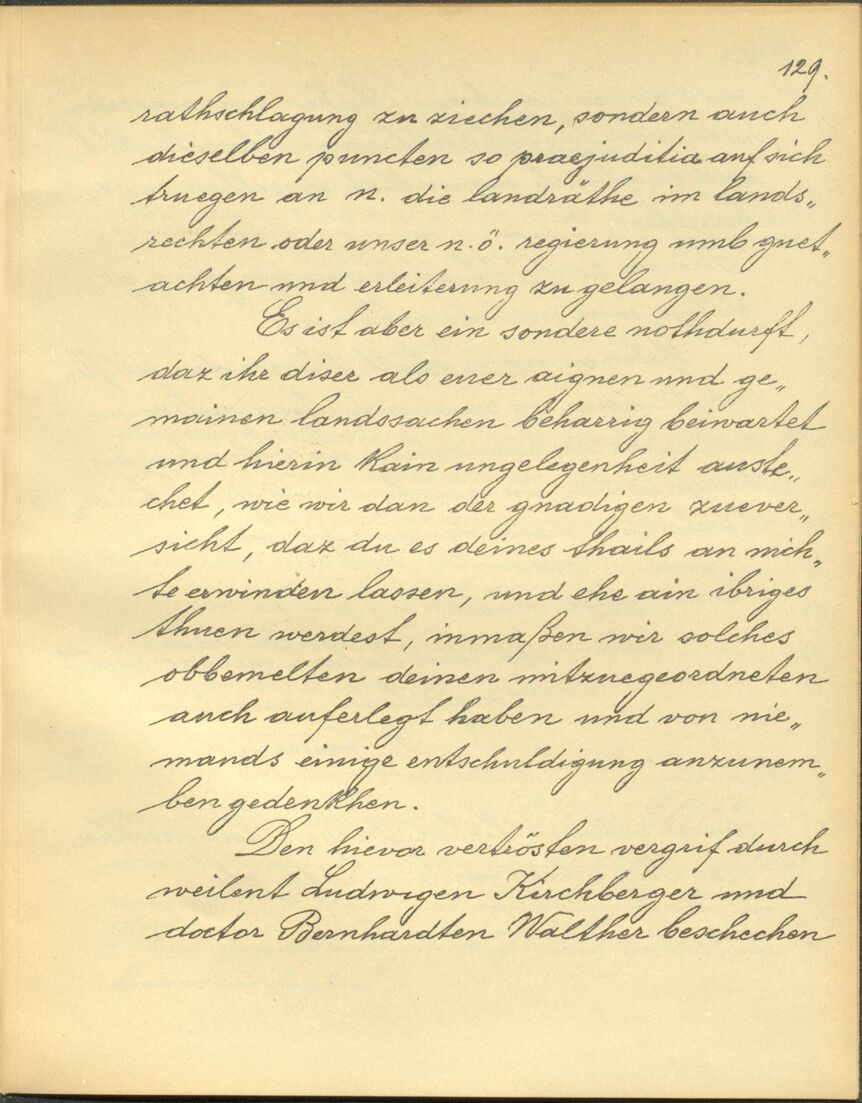 129.
rathschlagung zu ziechen, sondern auch
dieselben puncten so praejuditia auf sich
truegen an n. die landräthe im lands„
rechten oder unser n.ö. regierung umb guet„
achten und erleiterung zu gelangen.
Es ist aber ein sondere nothdurft,
daz ihr diser als euer aignen und ge„
mainen landssachen beharrig beiwartet
und hierin kain ungelegenheit auste„
chet, wie wir dan der gnadigen zuever„
sicht, daz du es deines thails an nich„
te erwinden lassen, und ehe ain ibriges
thuen werdest, inmaßen wir solches
obbemelten deinen mitzuegeordneten
auch auferlegt haben und von nie„
mands einige entschuldigung anzunem„
ben gedenkhen.
Den hievor vertrösten vergrif durch
weilent Ludwigen Kirchberger und
doctor Bernhardten Walther beschechen